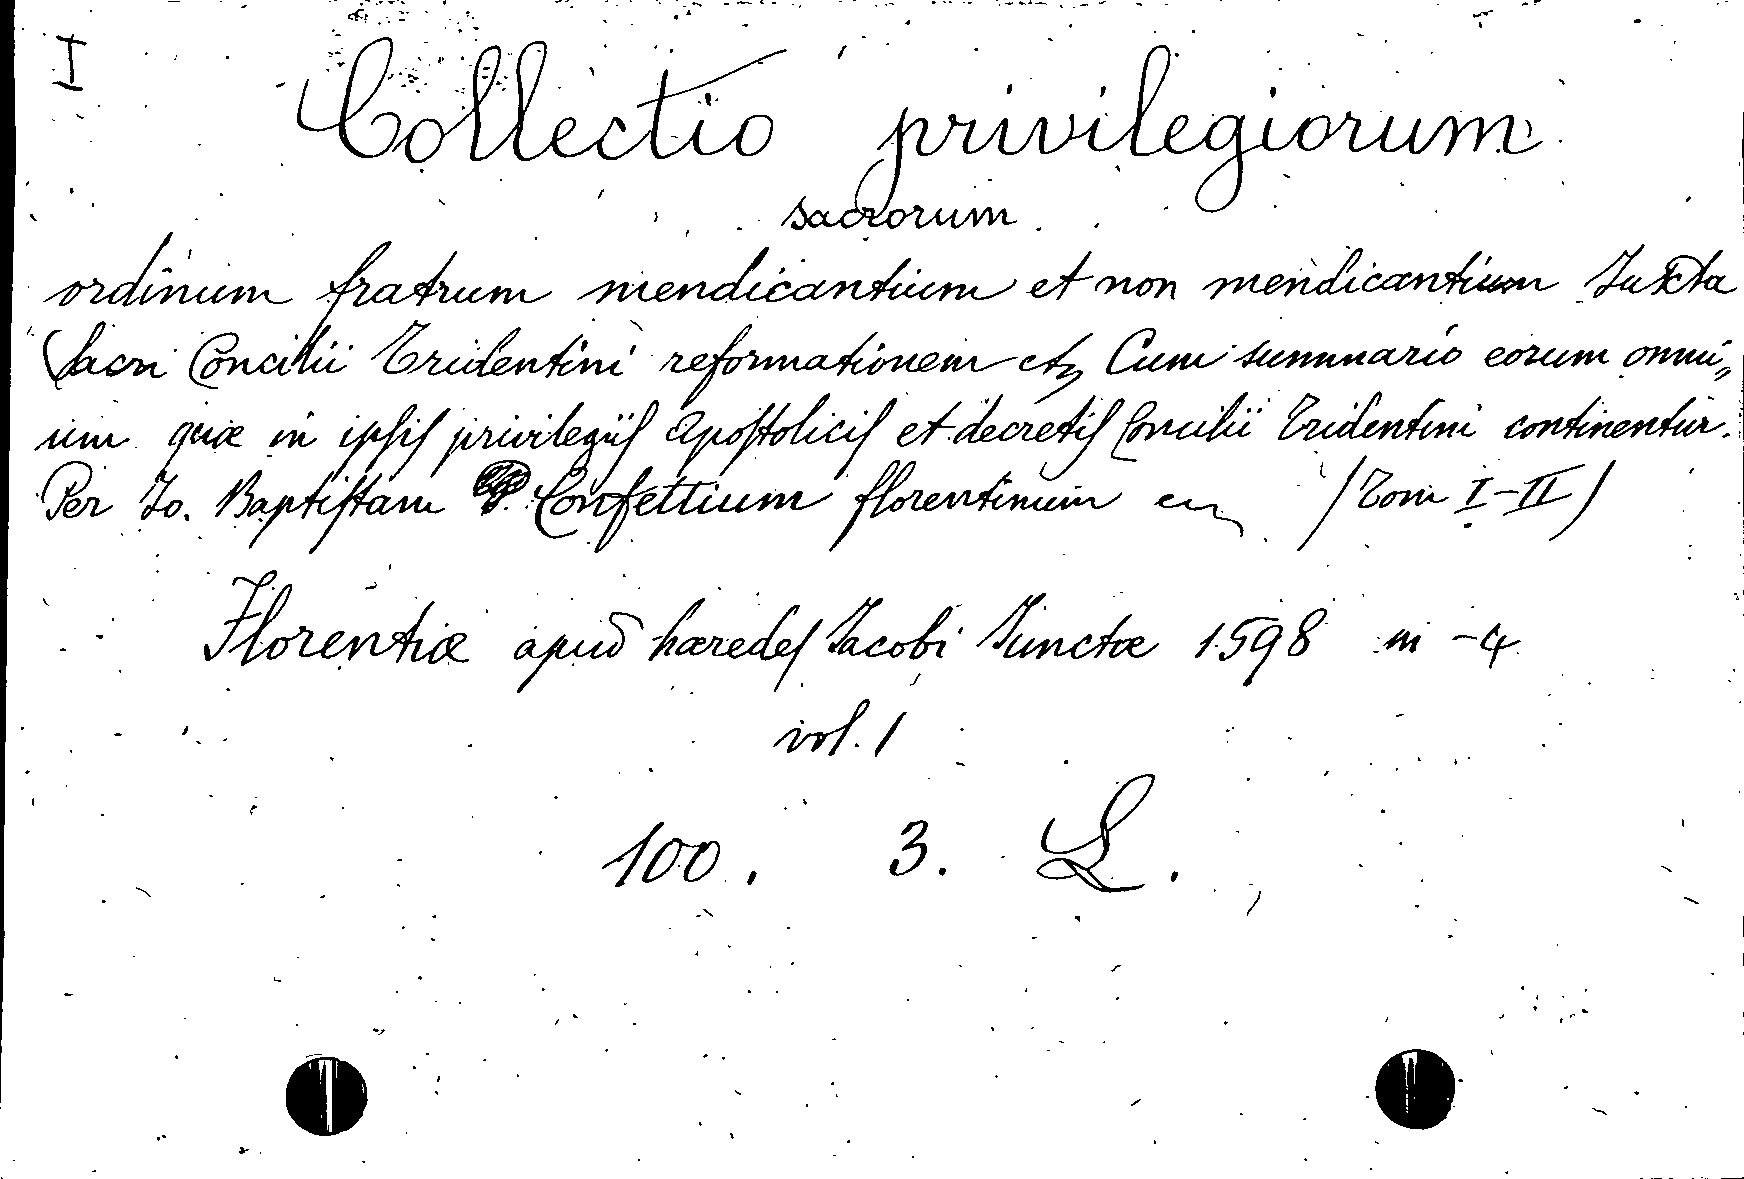 I
Collectio privilegiorum
sacrorum
ordinum fratrum mendicantium et non mendicantium Juxta
Sacri Concilii Tridentini reformationem etz Cum summario eorum omni„
um quæ in ipſiſ privilegiiſ Apoſtoliciſ et decretiſ Concilii Tridentini continentur.
Per Jo. Baptiſtam Confettium florentinum /Tom I-II/
Florentiæ apud hæredeſ Jacobi Junctæ 1598 in -4
vol. 1
100. 3. L.